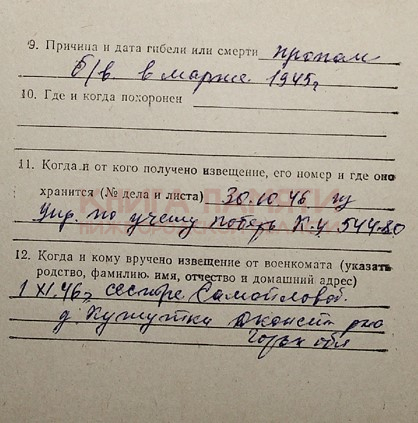 9. Причина и дата гибели или смерти пропал
б/в. в марте 1945г
10. Где и когда похоронен
11. Когда и от кого получено извещение, его номер и где оно
хранится (№ дела и листа) 30.10.46 из
Упр. по учету потерь К.У. 54480
12. Когда и кому вручено извещение от военкомата (указать
родство, фамилию, имя, отчество и домашний адрес)
1 XI.46г. сестре Самойловой.
д. Кужутки Дконст р-на
Горьк обл
КНИГА ПАМЯТИ